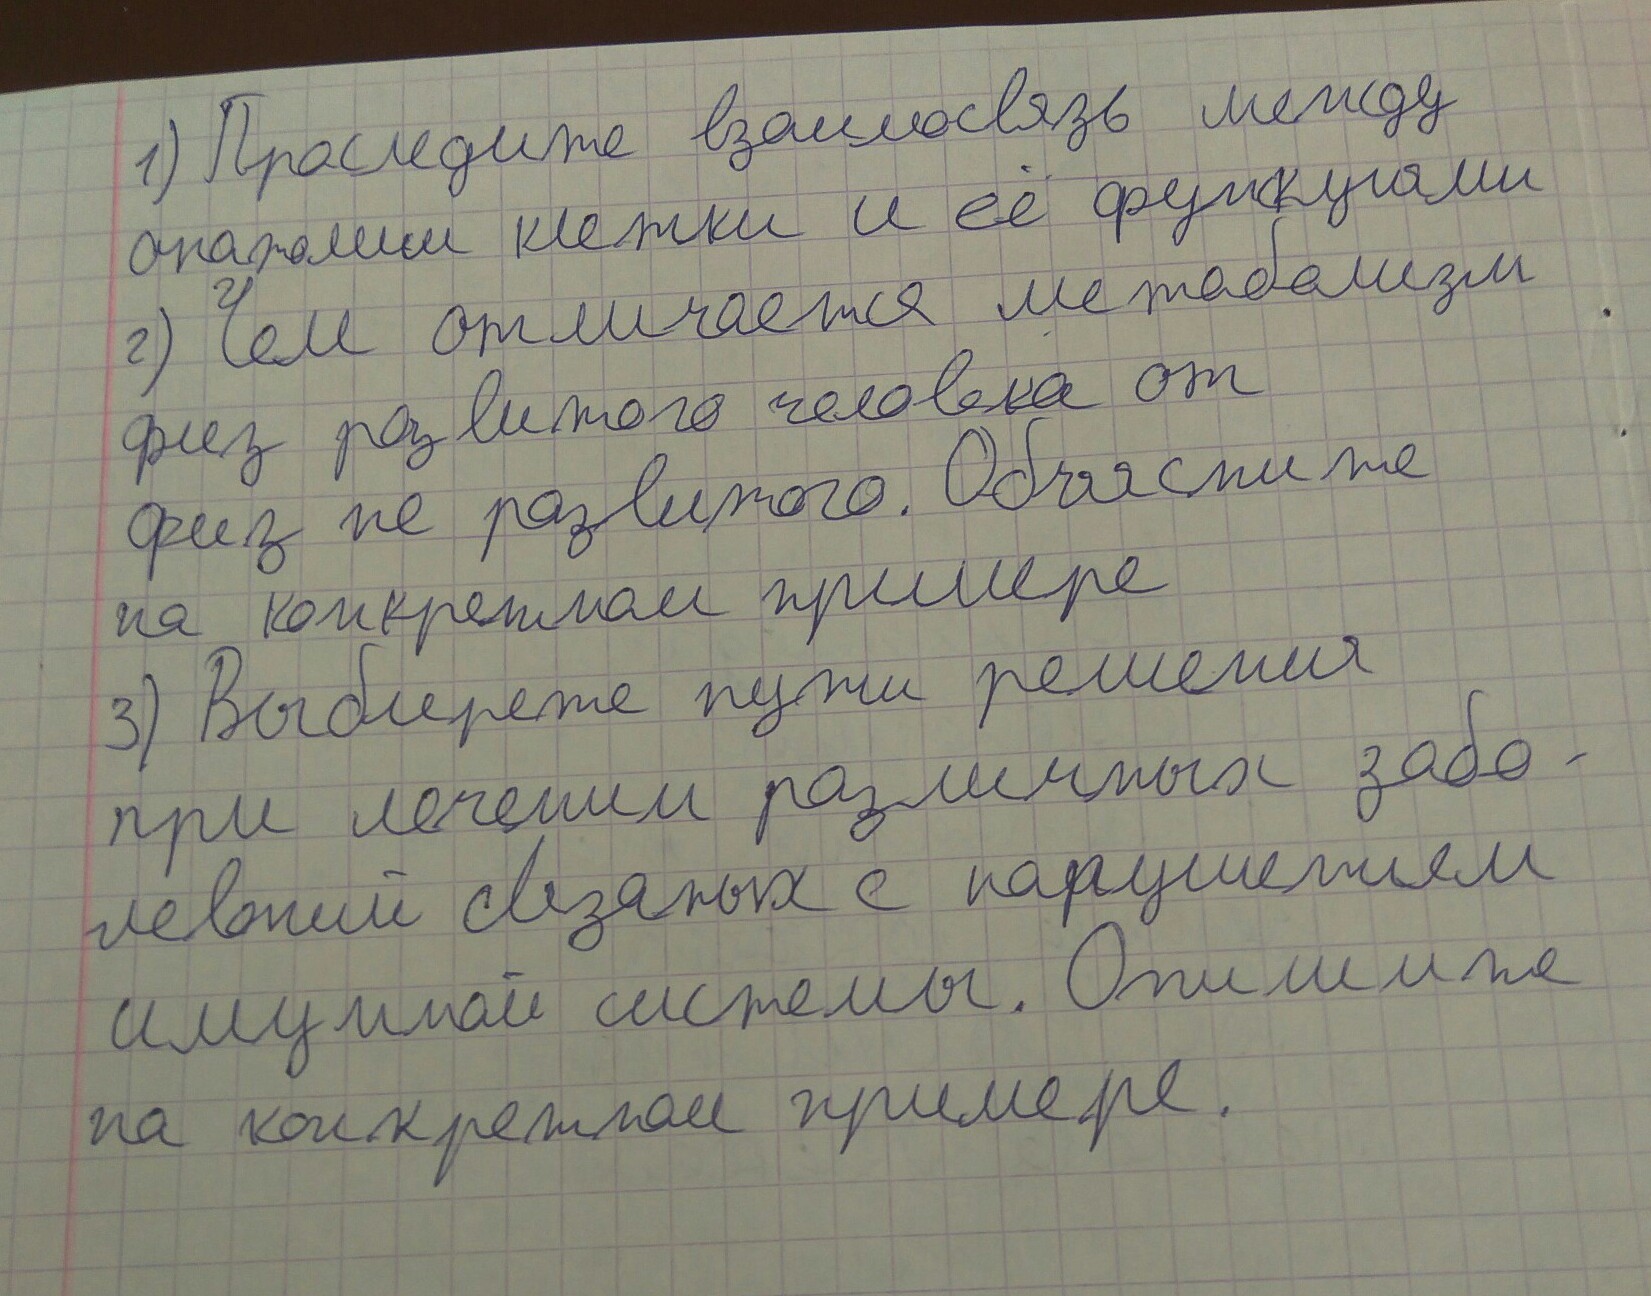 1) Проследите взаимосвязь между
анатомии клетки и её функциями
2) Чем отличается метаболизм
физ развитого человека от
физ не развитого. Объясните
на конкретном примере
3) Выберете пути решения
при лечении различных забо-
леваний свезаных с нарушением
имунной системы. Опишите
на конкретном примере.